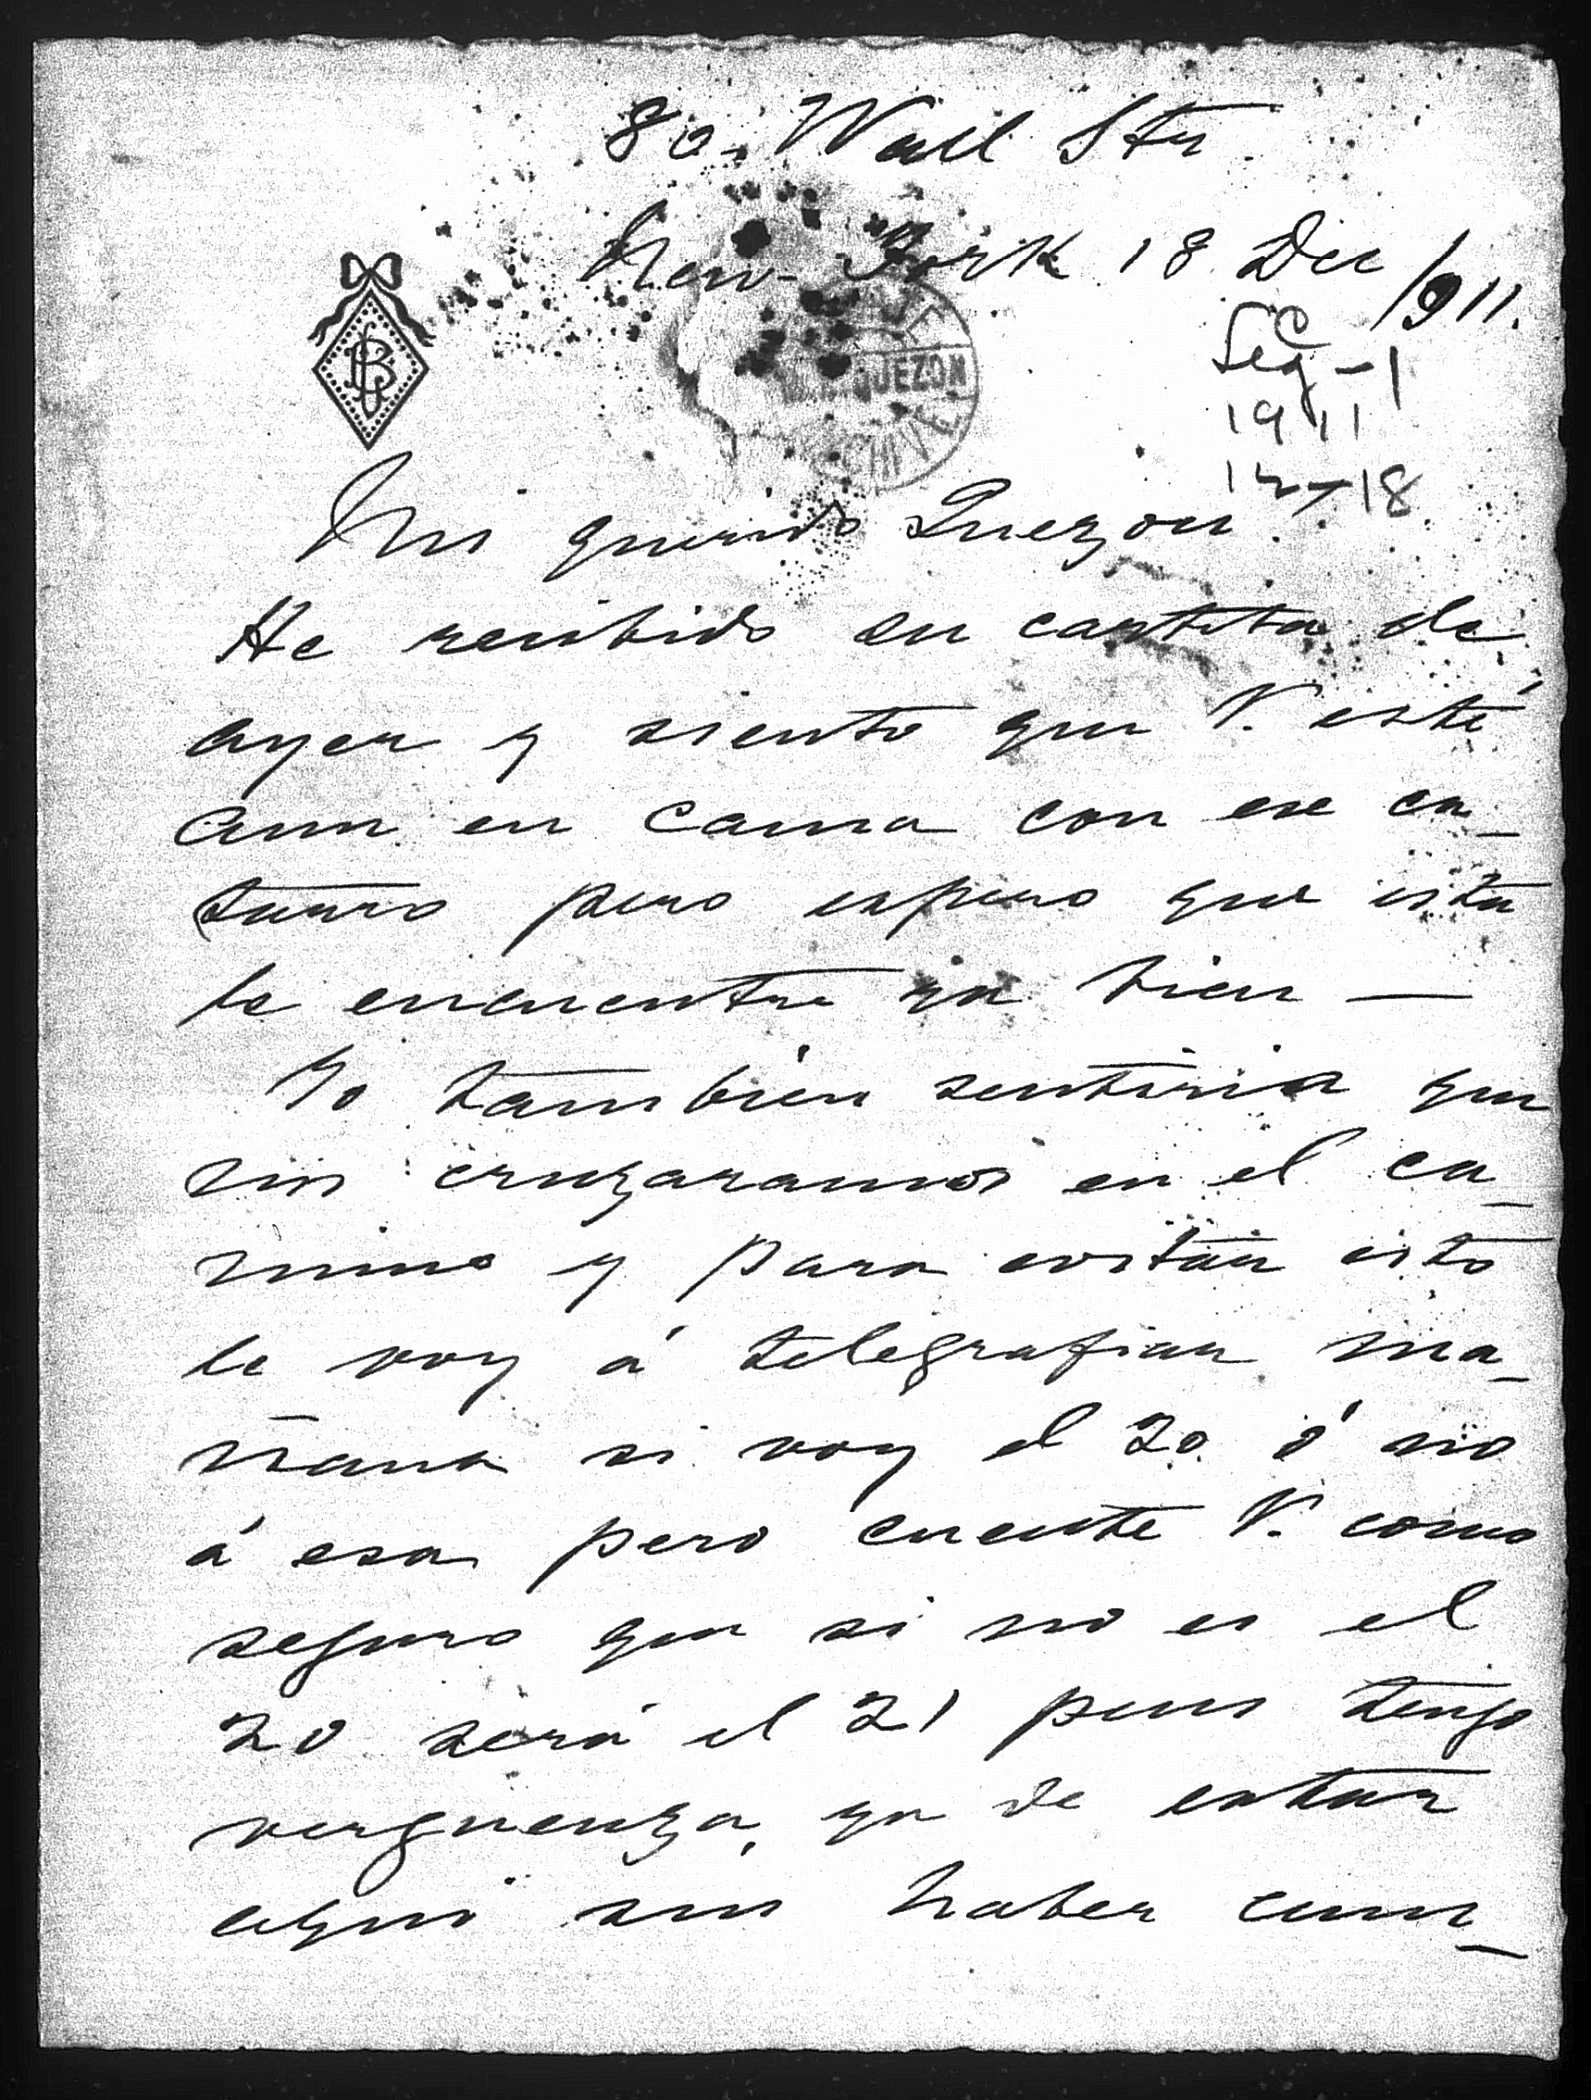 80. Wall Str
New-York 18 Dec /911.
Seg-1
1911
12-18
Mi querido Quezon:
He recibido su cartita de
ayer y siento que V. esté
aun en cama con ese ca-
tarro pero espero que esta
le encuentre ya bien —
Yo tambien sentiria que
nos cruzaramos en el ca-
mino y para evitar esto
le voy á telegrafiar ma-
ñana si voy el 20 ó no
á esa pero cuente V. como
seguro que si no es el
20 será el 21 pues tengo
verguenza ya de estar
aqui sin haber cum-
QUEZON